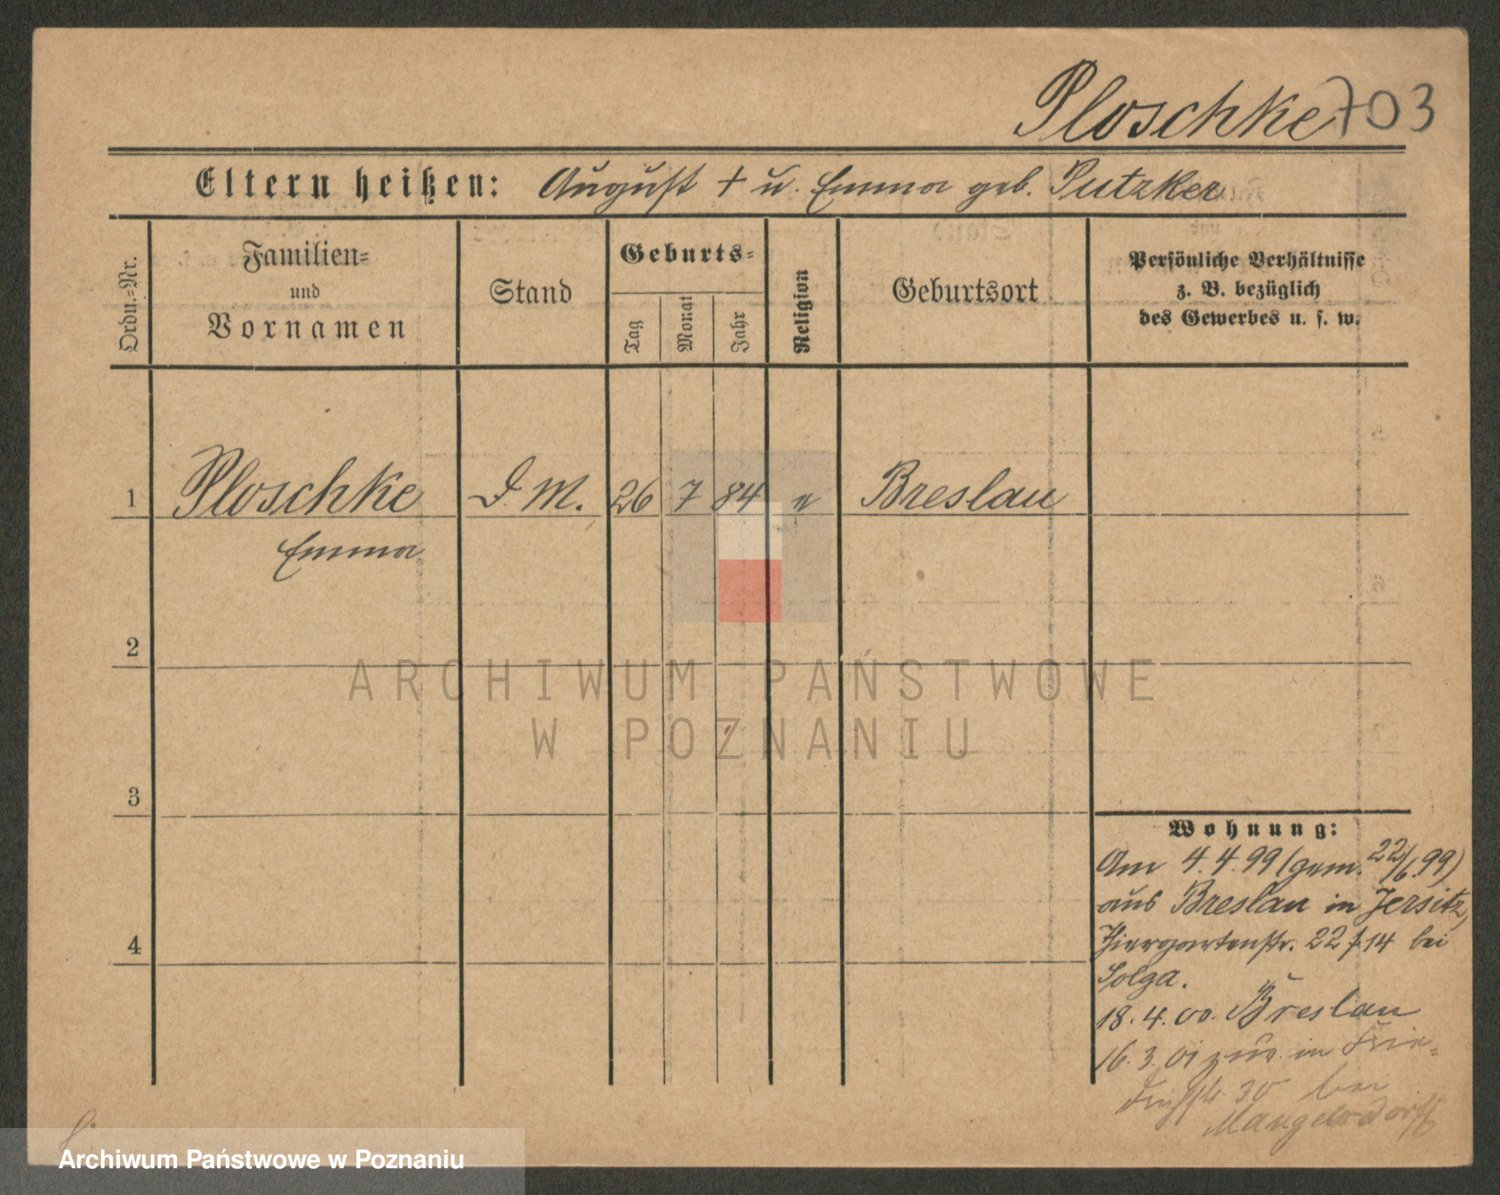 Ploschke 703
Eltern heißen: August + u. Emma geb. Putzker
Ordn.-Nr.
Familien-
und
Vornamen
Stand
Geburts-
Tag
Monat
Jahr
Religion
Geburtsort
Persönliche Verhältnisse
z. B. bezüglich
des Gewerbes u. s. w.
1 Ploschke D. M. 26 7 84 Breslau
Emma
2
3
4
Wohnung:
Am 4.4.99 (gem. 22/6.99)
aus Breslau in Jersitz,
Thiergartenstr. 22 f. 14 bei
Solga.
18.4.00. Breslau
16.3.01 zur. in Frie-
drichstr. 30 bei
Mangelsdorff
ARCHIWUM PAŃSTWOWE
W POZNANIU
Archiwum Państwowe w Poznaniu